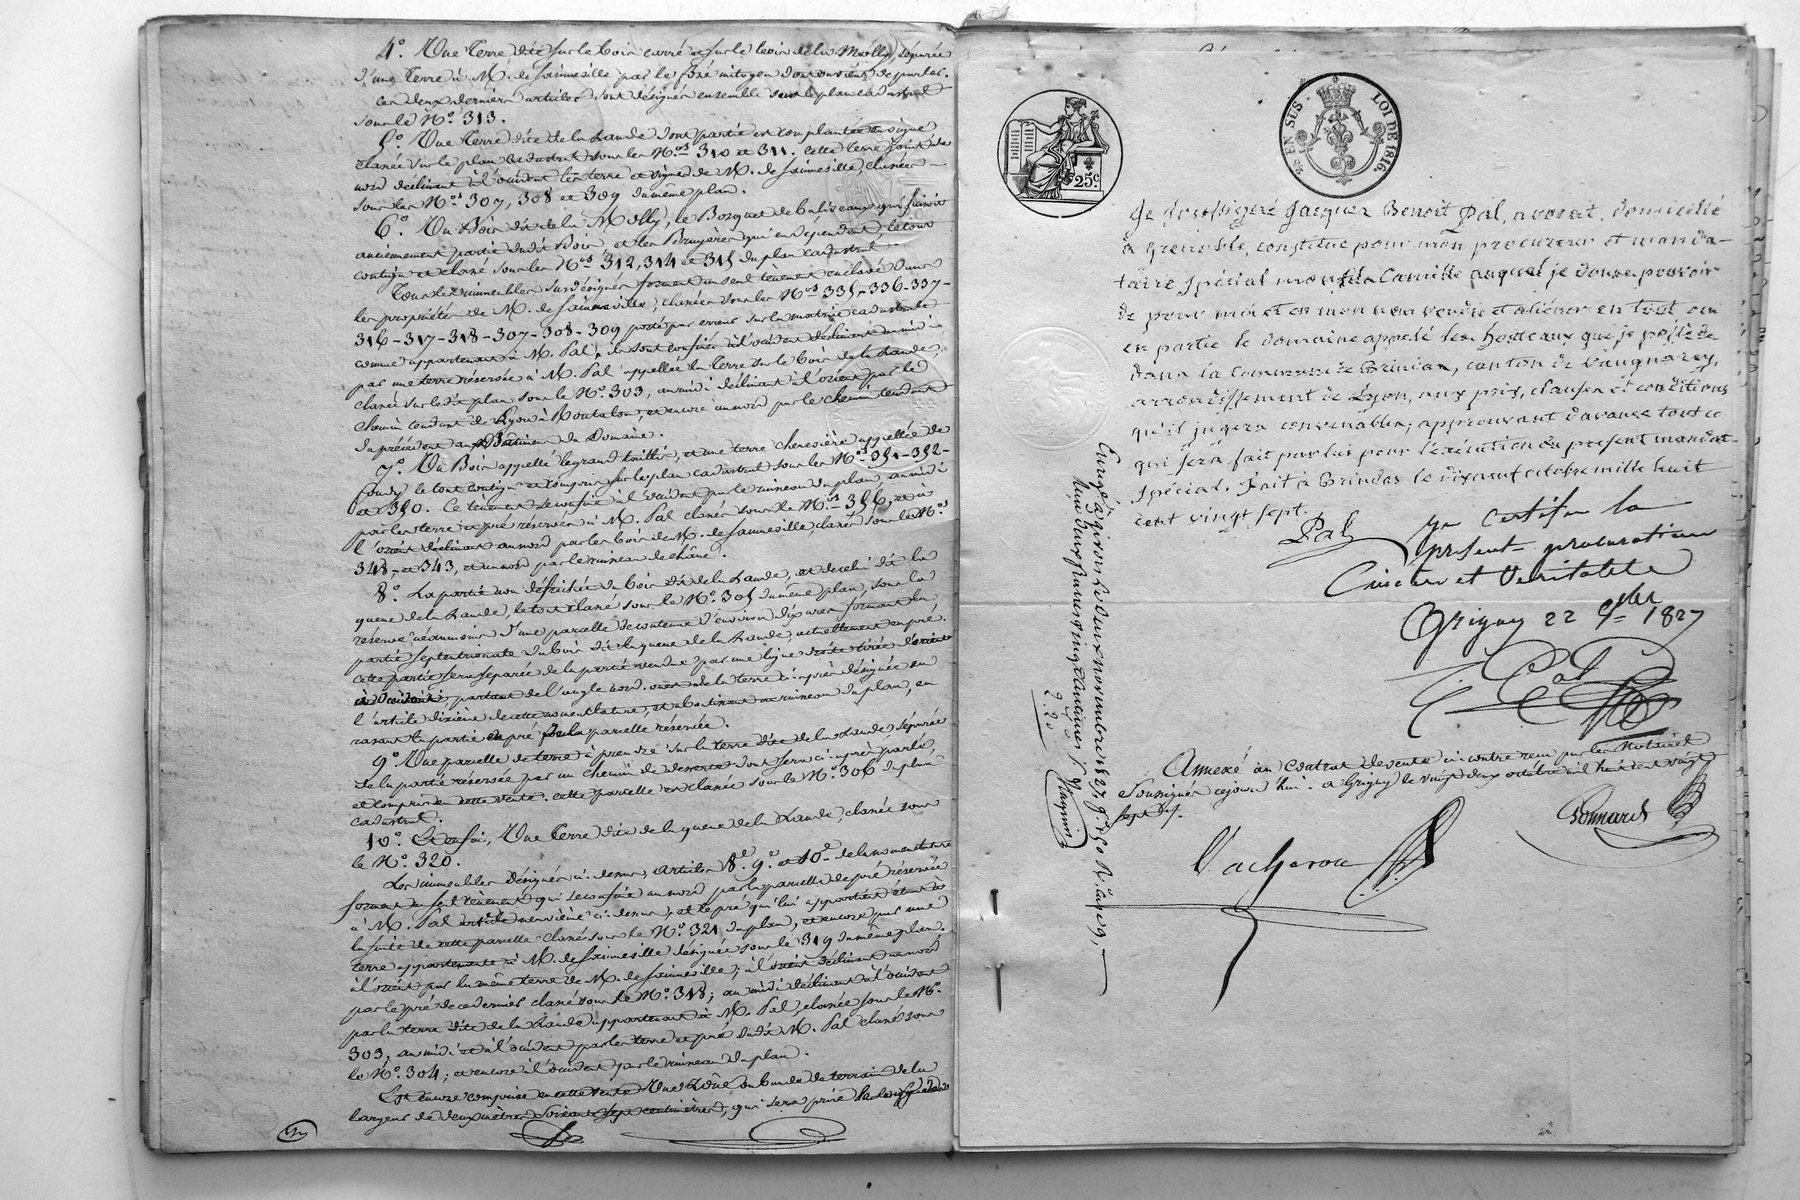 4º. Une Terre dite sur le bois carré et sur le bois de la Molly, séparée
d'une Terre à M. de Sainneville par le fossé mitoyen dont on vient de parler.
Ces deux derniers articles sont désignés ensemble sur le plan cadastral
sous le Nº. 313.
5º. Une Terre dite de la Lande dont partie est complantée en vigne
classée sur le plan cadastral sous les Nos 310 et 311. cette terre joint de
nord déclinant à l'occident les terre et vigne de M. de Sainneville, classées
sous les Nos 307, 308 et 309 du même plan.
6º. Un Bois dit de la Molly, le Bosquet de baliveaux qui faisoit
anciennement partie dudit Bois, et les Bruyères qui en dépendent, le tout
contigu et classé sous les Nos 312, 314 et 315 du plan cadastral.
Tous les immeubles susdésignés forment un seul tènement enclavé dans
les propriétés de M. de Sainneville, classées sous les Nos 335-336-337-
316-317-318-307-308-309 porté par erreur sur la matrice cadastrale
comme appartenant à M. Pal, ils sont confinés à l'occident déclinant au midi
par une terre réservée à M. Pal appellée la Terre sur le bois de la Lande,
classée sur le dit plan sous le Nº. 303, au midi déclinant à l'orient par le
chemin tendant de Lyon à Montalon, et encore au nord par le chemin tendant
du précédent aux Bâtimens du Domaine.
7º. Un Bois appellé le grand taillis, et une terre appellée de
le tout contigu et compris sur le plan cadastral sous les Nos 351-352-
et 350. Ce tènement se confine à l'occident par le ruisseau du plan, au midi
par les terre et pré réservés à M. Pal classés sous le Nos 356, et à
l'orient déclinant au nord par les bois de M. de Sainneville, classés sous les Nos
348, et 343, et au nord par le ruisseau de chêne.
8º. La partie non défrichée du bois dit de la Lande, et de celui dit la
queue de la Lande, le tout classé sous le Nº. 305 du même plan, sous la
réserve néanmoins d'une parcelle de contenue d'environ dix ares formant la
partie septentrionale du bois dit la queue de la Lande actuellement en pré.
cette partie sera séparée de la partie vendue par une ligne droite tirée d'orient
à occident, partant de l'angle nord-ouest de la terre ci-après désignée en
l'article dixième de cette nomenclature, et aboutissant au ruisseau du plan, en
rasant la partie en pré de la parcelle réservée.
9º. Une parcelle de terre à prendre sur la terre dite de la Lande, séparée
de la partie réservée par un chemin de desserte dont sera ci-après parlé,
et compris en cette vente. cette parcelle est classée sous le Nº. 306 du plan
cadastral.
10º. Et enfin, Une Terre dite de la queue de la Lande, classée sous
le Nº. 320.
Les immeubles désignés ci-dessus, articles 8e 9e et 10e de la nomenclature
forment un seul tènement qui se confine au nord par la parcelle de pré réservée
à M. Pal article neuvième ci-dessus, et le pré qui lui appartient étant à
la suite de cette parcelle classé sous le Nº. 321 du plan, et encore par une
terre appartenante à M. de Sainneville désignée sous le 319 du même plan.
à l'orient par la même terre de M. de Sainneville; à l'orient déclinant au nord
par le pré de ce dernier classé sous le Nº. 318; au midi déclinant à l'occident
par la terre dite de la Lande appartenant à M. Pal, classée sous le Nº.
303, au midi et à l'occident par les terre et pré dudit M. Pal classés sous
le Nº. 304; et encore à l'occident par le ruisseau du plan.
Est encore comprise en cette vente Une Zone ou bande de terrain de la
largeur de deux mètres soixante sept centimètres, qui sera prise
25c.
EN SUS. LOI DE 1816.
Je soussigné Jacques Benoit Pal, avocat, domicilié
à Grenoble, constitue pour mon procureur et manda-
taire spécial mon fils Camille auquel je donne pouvoir
de pour moi et en mon nom vendre et aliéner en tout ou
en partie le domaine appelé les hoteaux que je possède
dans la Commune de Brindas, canton de Vaugneray,
arrondissement de Lyon, aux prix, clauses et conditions
qu'il jugera convenables; approuvant d'avance tout ce
qui sera fait par lui pour l'exécution du présent mandat
spécial. Fait à Brindas le dixsept octobre mille huit
cent vingt sept.
Pal
Je Certifie la
présente procuration
Sincère et Véritable
Grigny 22 8bre 1827
C. Pal
Enregé. à Givors le deux novembre 1827 fº. 150 R. Case 9,
Reçu deux francs vingt centimes
2.20
Annexé au Contrat de vente ci-contre reçu par les Notaires
Soussignés cejourd'hui. à Grigny le vingt deux octobre mil huit cent vingt
sept
Ponnard
Vacheron